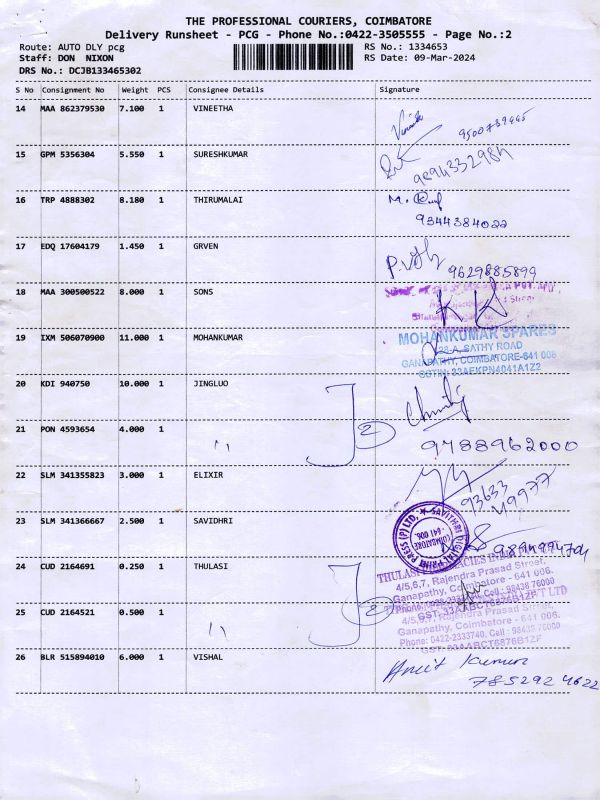 THE PROFESSIONAL COURIERS, COIMBATORE
Delivery Runsheet - PCG - Phone No.:0422-3505555 - Page No.:2
Route: AUTO DLY pcg RS No.: 1334653
Staff: DON NIXON RS Date: 09-Mar-2024
DRS No.: DCJB133465302
S No Consignment No Weight PCS Consignee Details Signature
14 MAA 862379530 7.100 1 VINEETHA
15 GPM 5356304 5.550 1 SURESHKUMAR
16 TRP 4888302 8.180 1 THIRUMALAI
9344384022
17 EDQ 17604179 1.450 1 GRVEN
9629885899
18 MAA 300500522 8.000 1 SONS
19 IXM 506070900 11.000 1 MOHANKUMAR
MOHANKUMAR SPARES
SATHY ROAD
GANAPATHY, COIMBATORE-641 006
GSTIN: 33AEKPN4041A1Z2
20 KDI 940750 10.000 1 JINGLUO
21 PON 4593654 4.000 1 " 2
9788962000
22 SLM 341355823 3.000 1 ELIXIR
93633
49977
23 SLM 341366667 2.500 1 SAVIDHRI
SAVITHRI DIGITAL PRINT PRESS (P) LTD,
COIMBATORE-
641 006.
24 CUD 2164691 0.250 1 THULASI
4/5,6,7, Rajendra Prasad Street,
Ganapathy, Coimbatore - 641 006.
25 CUD 2164521 0.500 1 " 2
Ganapathy, Coimbatore - 641 006.
Phone: 0422-2333740, Cell: 98438 76000
GST: 33AABCT6876B1ZF
26 BLR 515894010 6.000 1 VISHAL
Amit Kumar
7852924622